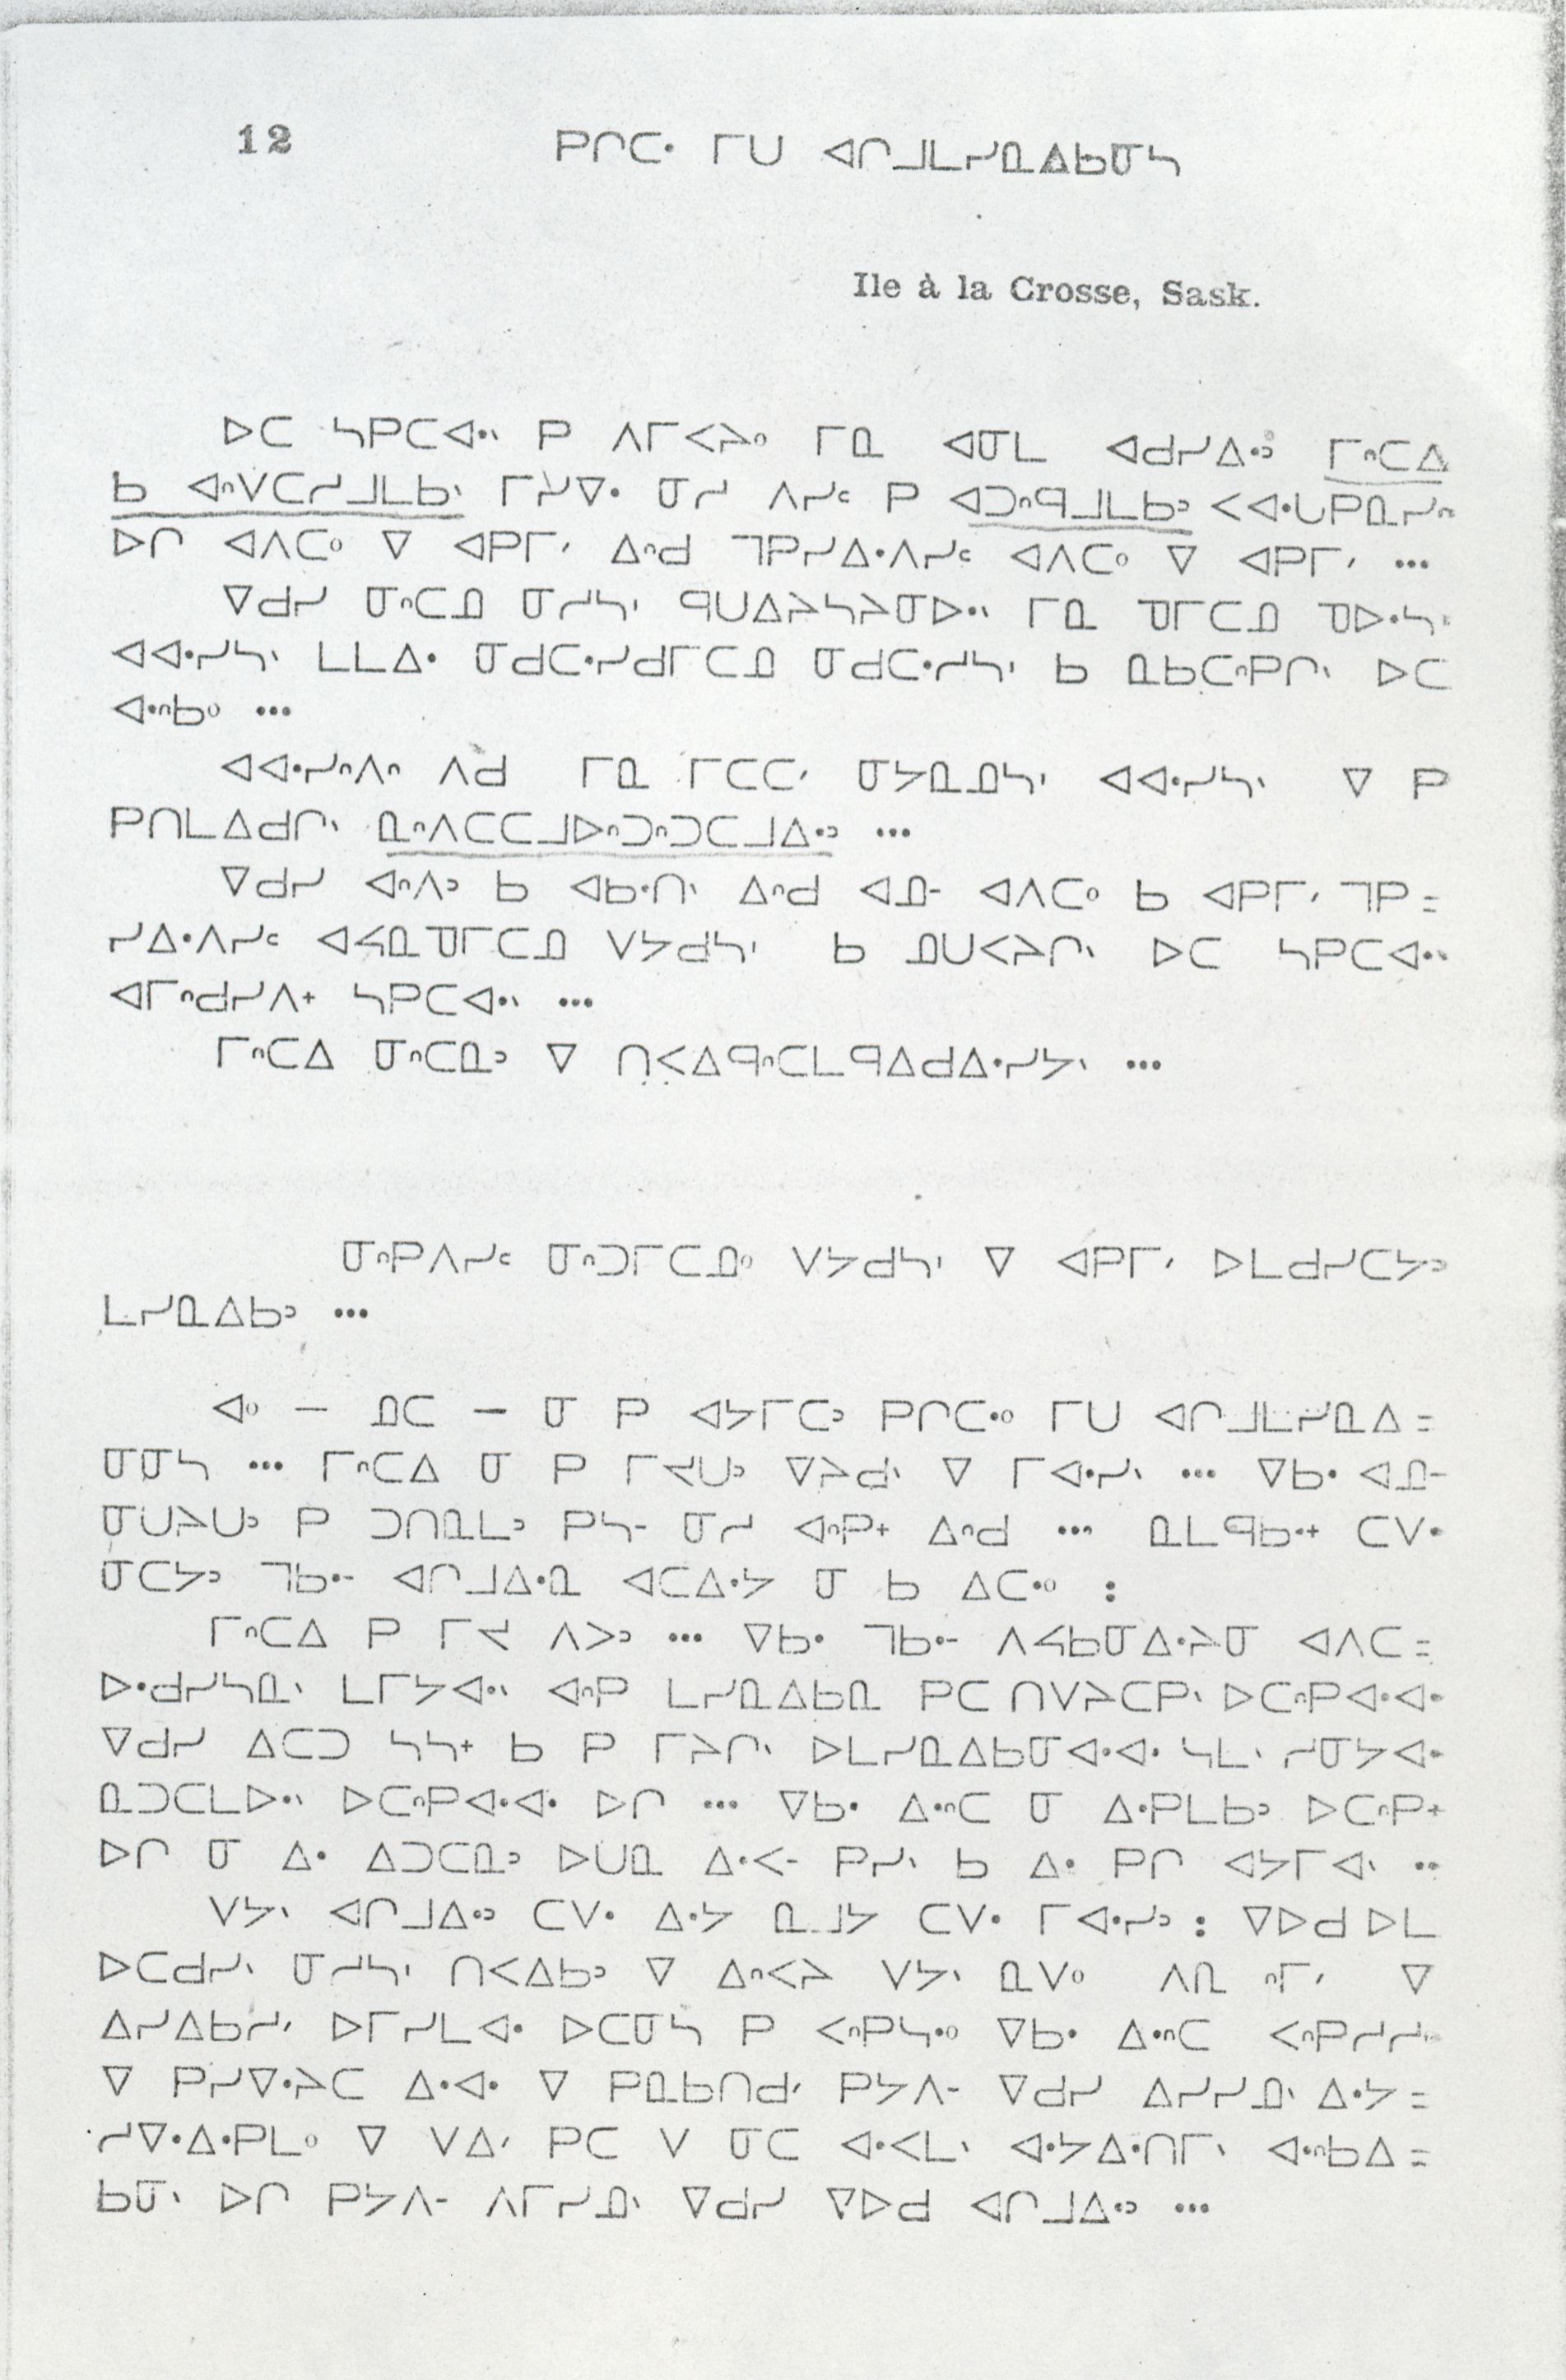 12 ᑭᒋᑕᐧ ᒥᑌ ᐊᒋᒧᒪᓯᓇᐃᑲᓂᓴ
Ile à la Crosse, Sask.
ᐅᑕ ᓴᑭᑕᐊᐧᐠ ᑭ ᐱᒥᐸᔨᐤ ᒥᓇ ᐊᓂᒪ ᐊᑯᓯᐃᐧᐣ ᒥᐢᑕᐃ
ᑲ ᐊᐢᐯᑕᓱᒧᒪᑲᐠ ᒥᓯᐁᐧ ᓂᓱ ᐱᓯᒼ ᑭ ᐊᑐᐢᑫᒧᒪᑲᐣ ᐸᐊᐧᒐᑭᓇᓯᐢ
ᐅᒋ ᐊᐱᑕᐤ ᐁ ᐊᑭᒥᐟ ᐃᐢᑯ ᒣᑭᓯᐃᐧᐱᓯᒼ ᐊᐱᑕᐤ ᐁ ᐊᑭᒥᐟ ...
ᐁᑯᓯ ᓂᐢᑕᓄ ᓂᓱᓴᐟ ᑫᑌᐃᔨᓴᔨᓂᐅᐧᐠ ᒥᓇ ᑯᒥᑕᓄ ᑯᐅᐧᓴᐟ
ᐊᐊᐧᓯᓴᐠ ᒪᒪᐃᐧ ᓂᑯᑕᐧᓯᑯᒥᑕᓄ ᓂᑯᑕᐧᓱᓴᐟ ᑲ ᓇᑲᑕᐢᑭᒋᐠ ᐅᑕ
ᐊᐧᐢᑲᐤ ...
ᐊᐊᐧᓯᐢᐱᐢ ᐱᑯ ᒥᓇ ᒥᑕᑕᐟ ᓂᔭᓇᓄᓴᐟ ᐊᐊᐧᓯᓴᐠ ᐁ ᑭ
ᑭᑎᒪᐃᑯᒋᐠ ᓇᐢᐱᑕᑕᒧᐅᐢᑐᐢᑐᑕᒧᐃᐧᐣ ...
ᐁᑯᓯ ᐊᐢᐱᐣ ᑲ ᐊᑲᐧᑎᐠ ᐃᐢᑯ ᐊᓄᐨ ᐊᐱᑕᐤ ᑲ ᐊᑭᒥᐟ ᒣᑭ=
ᓯᐃᐧᐱᓯᒼ ᐊᔭᓇᑯᒥᑕᓄ ᐯᔭᑯᓴᐟ ᑲ ᓄᑌᐸᔨᒋᐠ ᐅᑕ ᓴᑭᑕᐊᐧᐠ
ᐊᒥᐢᑯᓯᐱᕀ ᓴᑭᑕᐊᐧᐠ ...
ᒥᐢᑕᐃ ᓂᐢᑕᓇᐣ ᐁ ᑎᐸᐃᑫᐢᑕᒪᑫᐃᑯᐃᐧᓯᔭᐠ ...
ᓂᐢᑭᐱᓯᒼ ᓂᐢᑐᒥᑕᓄᐤ ᐯᔭᑯᓴᐟ ᐁ ᐊᑭᒥᐟ ᐅᒪᑯᓯᑕᔭᐣ
ᒪᓯᓇᐃᑲᐣ ...
ᐊᐤ — ᓄᑕ — ᓂ ᑭ ᐊᔭᒥᑕᐣ ᑭᒋᑕᐧᐤ ᒥᑌ ᐊᒋᒧᒪᓯᓇᐃ=
ᓂᓂᓴ ... ᒥᐢᑕᐃ ᓂ ᑭ ᒥᔪᑌᐣ ᐁᔨᑯᐠ ᐁ ᒥᐊᐧᓯᐠ ... ᐁᑲᐧ ᐊᓄᐨ
ᓂᑌᔨᑌᐣ ᑭ ᑐᑎᓇᒪᐣ ᑭᓴᐨ ᓂᓱ ᐊᐢᑭᕀ ᐃᐢᑯ ... ᓇᒪᑫᑲᐧᕀ ᑕᐯᐧ
ᓂᑕᔭᐣ ᒣᑲᐧᐨ ᐊᒋᒧᐃᐧᓇ ᐊᑕᐃᐧᔭ ᓂ ᑲ ᐃᑕᐧᐤ :
ᒥᐢᑕᐃ ᑭ ᒥᔪ ᐱᐳᐣ ... ᐁᑲᐧ ᒣᑲᐧᐨ ᐱᔭᑲᓂᐃᐧᔨᓂ ᐊᐱᑕ=
ᐅᐧᑯᓯᓴᓇᐠ ᒪᒥᔭᐊᐧᐠ ᐊᐢᑭ ᒪᓯᓇᐃᑲᓇ ᑭᑕ ᑎᐯᔨᑕᑭᐠ ᐅᑕᐢᑭᐊᐧᐊᐧ
ᐁᑯᓯ ᐃᑕᑐ ᓴᓴᕀ ᑲ ᑭ ᒥᔨᒋᐠ ᐅᒪᓯᓇᐃᑲᓂᐊᐧᐊᐧ ᓴᒪᐠ ᓱᓂᔭᐊᐧ
ᓇᑐᑕᒪᐅᐧᐠ ᐅᑕᐢᑭᐊᐧᐊᐧ ᐅᒋ ... ᐁᑲᐧ ᐃᐧᐢᑕ ᓂ ᐃᐧᑭᒪᑲᐣ ᐅᑕᐢᑭᕀ
ᐅᒋ ᓂ ᐃᐧ ᐃᑐᑕᓇᐣ ᐅᑌᓇ ᐃᐧᐸᐨ ᑭᓯᐠ ᑲ ᐃᐧ ᑭᒋ ᐊᔭᒥᐊᐠ ..
ᐯᔭᐠ ᐊᒋᒧᐃᐧᐣ ᑕᐯᐧ ᐃᐧᔭ ᓇᒧᔭ ᑕᐯᐧ ᒥᐊᐧᓯᐣ : ᐁᐅᑯ ᐅᒪ
ᐅᑕᑯᓯᐠ ᓂᓱᓴᐟ ᑎᐸᐃᑲᐣ ᐁ ᐃᐢᐸᔨ ᐯᔭᐠ ᓇᐯᐤ ᐱᓇ ᐢᒥᐟ ᐁ
ᐃᓯᐃᑲᓱᐟ ᐅᒥᓯᒪᐊᐧ ᐅᑕᓂᓴ ᑭ ᐸᐢᑭᓴᐧᐤ ᐁᑲᐧ ᐃᐧᐢᑕ
ᐁ ᑭᓯᐁᐧᔨᑕ ᐃᐧᐊᐧ ᐁ ᑭᓇᑲᑎᑯᐟ ᑭᔭᐱᐨ ᐁᑯᓯ ᐃᓯᓯᓄᐠ ᐃᐧᔭ=
ᓱᐁᐧᐃᐧᑭᒪᐤ ᐁ ᐯᐃᐟ ᑭᑕ ᐯ ᓂᑕ ᐊᐧᐸᒪᐠ ᐊᐧᔭᐃᐧᑎᒥᐠ ᐊᐧᐢᑲᐃ=
ᑲᓂᐠ ᐅᒋ ᑭᔭᐱᐨ ᐱᒥᓯᓄᐠ ᐁᑯᓯ ᐁᐅᑯ ᐊᒋᒧᐃᐧᐣ ...